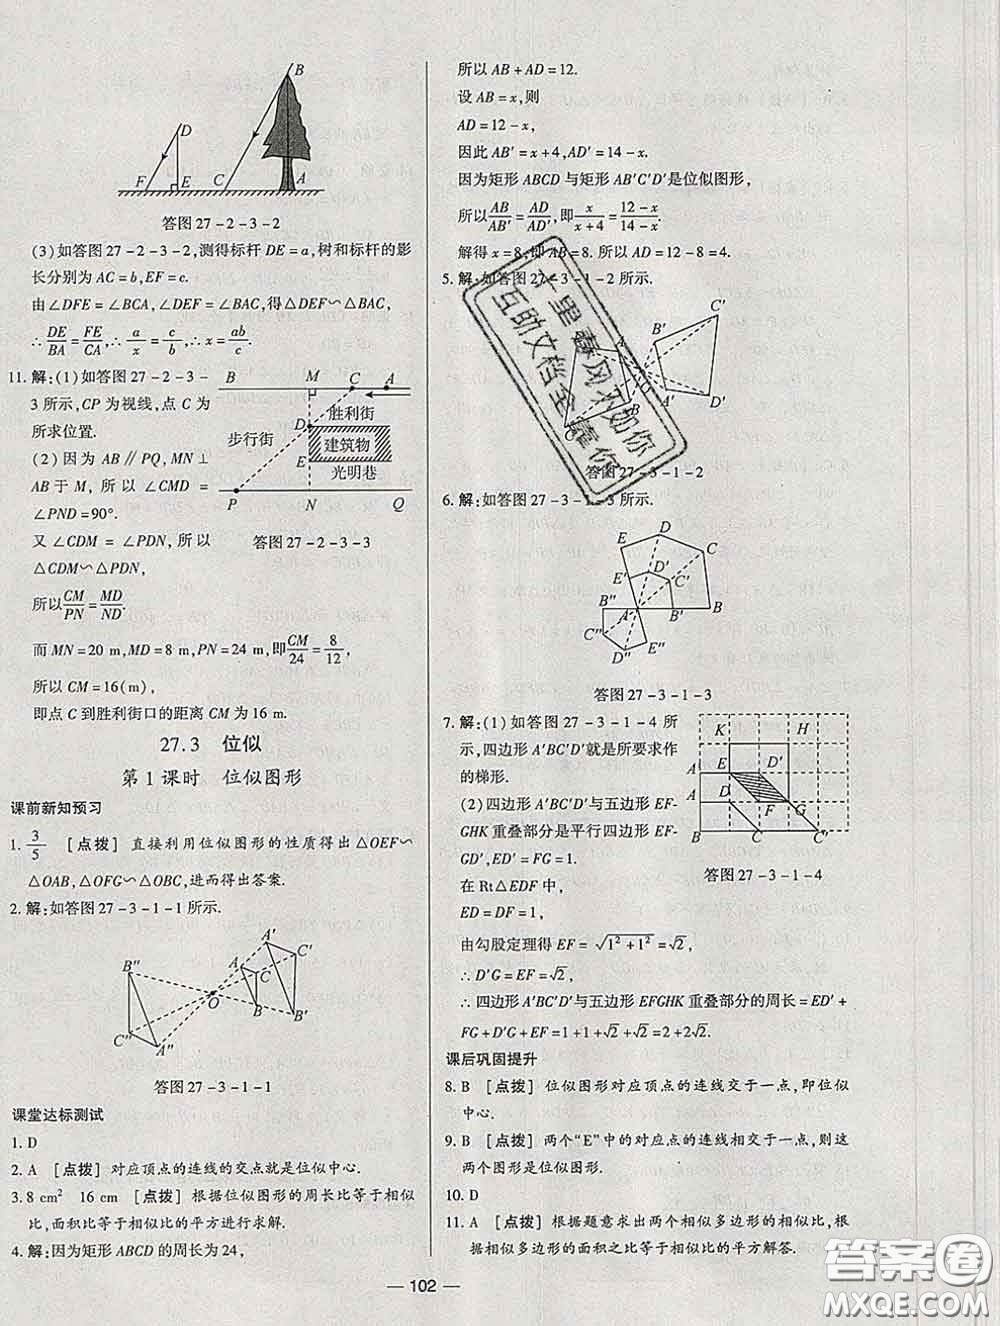 B
D
F
E
C
A
答图27-2-3-2
(3)如答图27-2-3-2,测得标杆DE=a,树和标杆的影
长分别为AC=b,EF=c.
由∠DFE=∠BCA,∠DEF=∠BAC,得△DEF∽△BAC,
∴DE/BA=FE/CA,∴a/x=c/b,∴x=ab/c.
11.解:(1)如答图27-2-3-
3所示,CP为视线,点C为
所求位置.
(2)因为AB∥PQ,MN⊥
AB于M,所以∠CMD=
∠PND=90°.
又∠CDM=∠PDN,所以
△CDM∽△PDN,
B M C A
胜利街
步行街
D
建筑物
E
光明巷
P N Q
答图27-2-3-3
所以CM/PN=MD/ND.
而MN=20 m,MD=8 m,PN=24 m,即CM/24=8/12,
所以CM=16(m),
即点C到胜利街口的距离CM为16 m.
27.3 位似
第1课时 位似图形
课前新知预习
1.3/5 [点拨] 直接利用位似图形的性质得出△OEF∽
△OAB,△OFG∽△OBC,进而得出答案.
2.解:如答图27-3-1-1所示.
A′
C′
B″
A
C
O
B
B′
C″
A″
答图27-3-1-1
课堂达标测试
1.D
2.A [点拨] 对应顶点的连线的交点就是位似中心.
3.8 cm² 16 cm [点拨] 根据位似图形的周长比等于相似
比,面积比等于相似比的平方进行求解.
4.解:因为矩形ABCD的周长为24,
所以AB+AD=12.
设AB=x,则
AD=12-x,
因此AB′=x+4,AD′=14-x.
因为矩形ABCD与矩形AB′C′D′是位似图形,
所以AB/AB′=AD/AD′,即x/x+4=12-x/14-x.
解得x=8,即AB=8. 所以AD=12-8=4.
5.解:如答图27-3-1-2所示.
C′
B′
A′
D′
B
答图27-3-1-2
6.解:如答图27-3-1-3所示.
D
E
C
D′
E′
C′
B″
A
B′
B
C″
D″
E″
答图27-3-1-3
7.解:(1)如答图27-3-1-4所
示,四边形A′BC′D′就是所要求作
的梯形.
(2)四边形A′BC′D′与五边形EF-
GHK重叠部分是平行四边形EF-
GD′,ED′=FG=1.
在Rt△EDF中,
ED=DF=1,
K H
A′ E D′
A D F G
B C C′
答图27-3-1-4
由勾股定理得EF=√1²+1²=√2,
∴D′G=EF=√2.
∴四边形A′BC′D′与五边形EFGHK重叠部分的周长=ED′+
FG+D′G+EF=1+1+√2+√2=2+2√2.
课后巩固提升
8.B [点拨] 位似图形对应顶点的连线交于一点,即位似
中心.
9.B [点拨] 两个“E”中的对应点的连线相交于一点,则这
两个图形是位似图形.
10.D
11.A [点拨] 根据题意求出两个相似多边形的相似比,根
据相似多边形的面积之比等于相似比的平方解答.
十里春风不如你
互助文档全靠你
102
答案卷
MXQE.COM